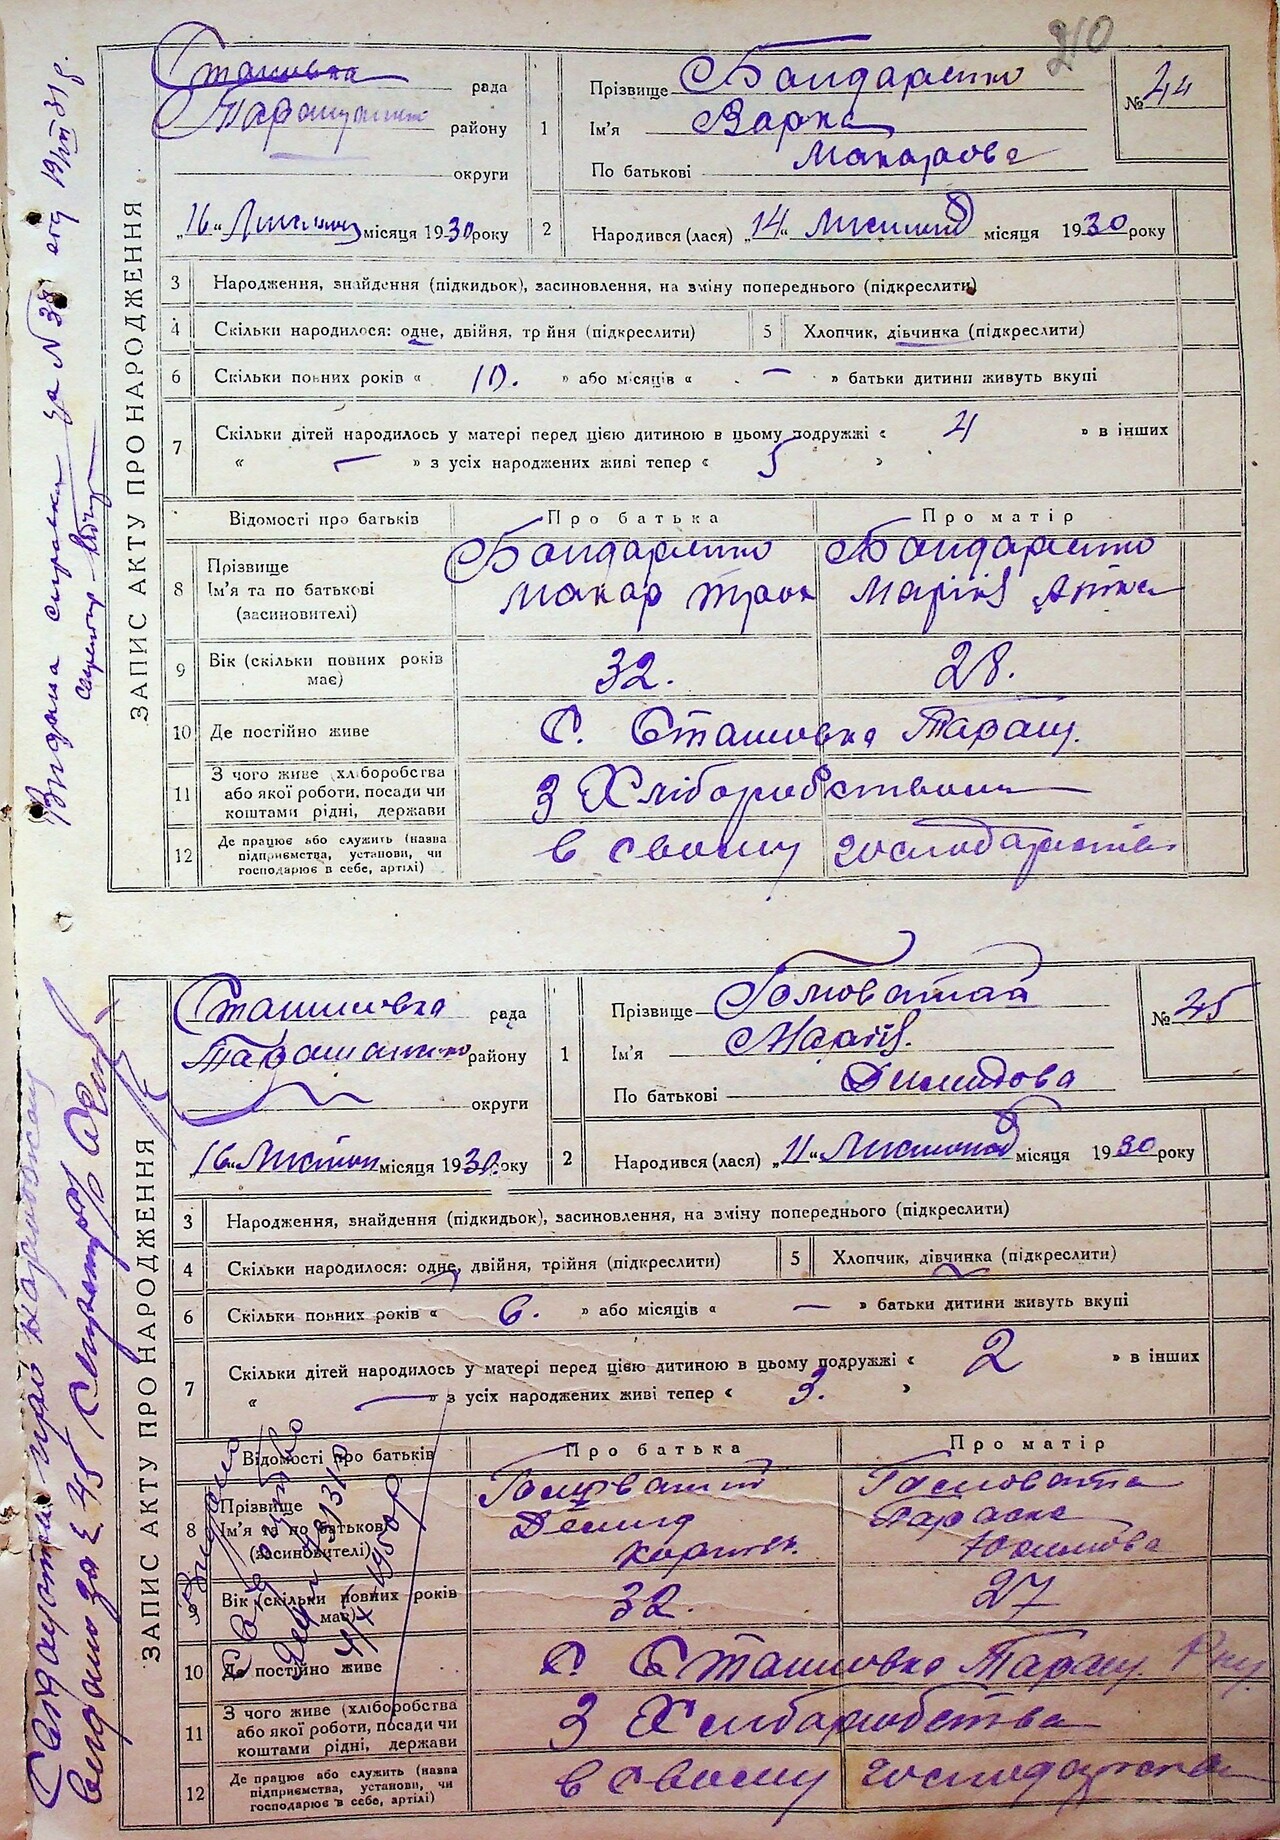 210
ЗАПИС АКТУ ПРО НАРОДЖЕННЯ
Сташовка рада
району
округи
1
Прізвище Бондаренко
Ім'я Варка
По батькові Макарова
№ 44
„16“ місяця 1930 року
2
Народився (лася) „14“ місяця 1930 року
3 Народження, знайдення (підкидьок), засиновлення, на зміну попереднього (підкреслити)
4 Скільки народилося: одне, двійня, трійня (підкреслити) 5 Хлопчик, дівчинка (підкреслити)
6 Скільки повних років « 10. » або місяців « — » батьки дитини живуть вкупі
7 Скільки дітей народилось у матері перед цією дитиною в цьому подружжі « 4 » в інших
« — » з усіх народжених живі тепер « 5 »
Відомості про батьків Про батька Про матір
8 Прізвище
Ім'я та по батькові
(засиновителі)
Бондаренко
Макар
Бондаренко
9 Вік (скільки повних років має) 32. 28.
10 Де постійно живе С. Сташовка Таращ.
11 З чого живе (хліборобства
або якої роботи, посади чи
коштами рідні, держави
З Хліборобства
12 Де працює або служить (назва
підприємства, установи, чи
господарює в себе, артілі)
в своему
Видана справка за № 38
ЗАПИС АКТУ ПРО НАРОДЖЕННЯ
Сташовка рада
району
округи
1
Прізвище Головатая
Ім'я Марія
По батькові Демидова
№ 45
„16“ місяця 1930 року
2
Народився (лася) „11“ Листопад місяця 1930 року
3 Народження, знайдення (підкидьок), засиновлення, на зміну попереднього (підкреслити)
4 Скільки народилося: одне, двійня, трійня (підкреслити) 5 Хлопчик, дівчинка (підкреслити)
6 Скільки повних років « 6. » або місяців « — » батьки дитини живуть вкупі
7 Скільки дітей народилось у матері перед цією дитиною в цьому подружжі « 2 » в інших
« — » з усіх народжених живі тепер « 3. »
Відомості про батьків Про батька Про матір
8 Прізвище
Ім'я та по батькові
(засиновителі)
Демид
Головата
Параска
Юхимова
9 Вік (скільки повних років має) 32. 27
10 Де постійно живе С. Сташовка Таращ. Р-ну.
11 З чого живе (хліборобства
або якої роботи, посади чи
коштами рідні, держави
З Хліборобства
12 Де працює або служить (назва
підприємства, установи, чи
господарює в себе, артілі)
в своему
видано за № 45